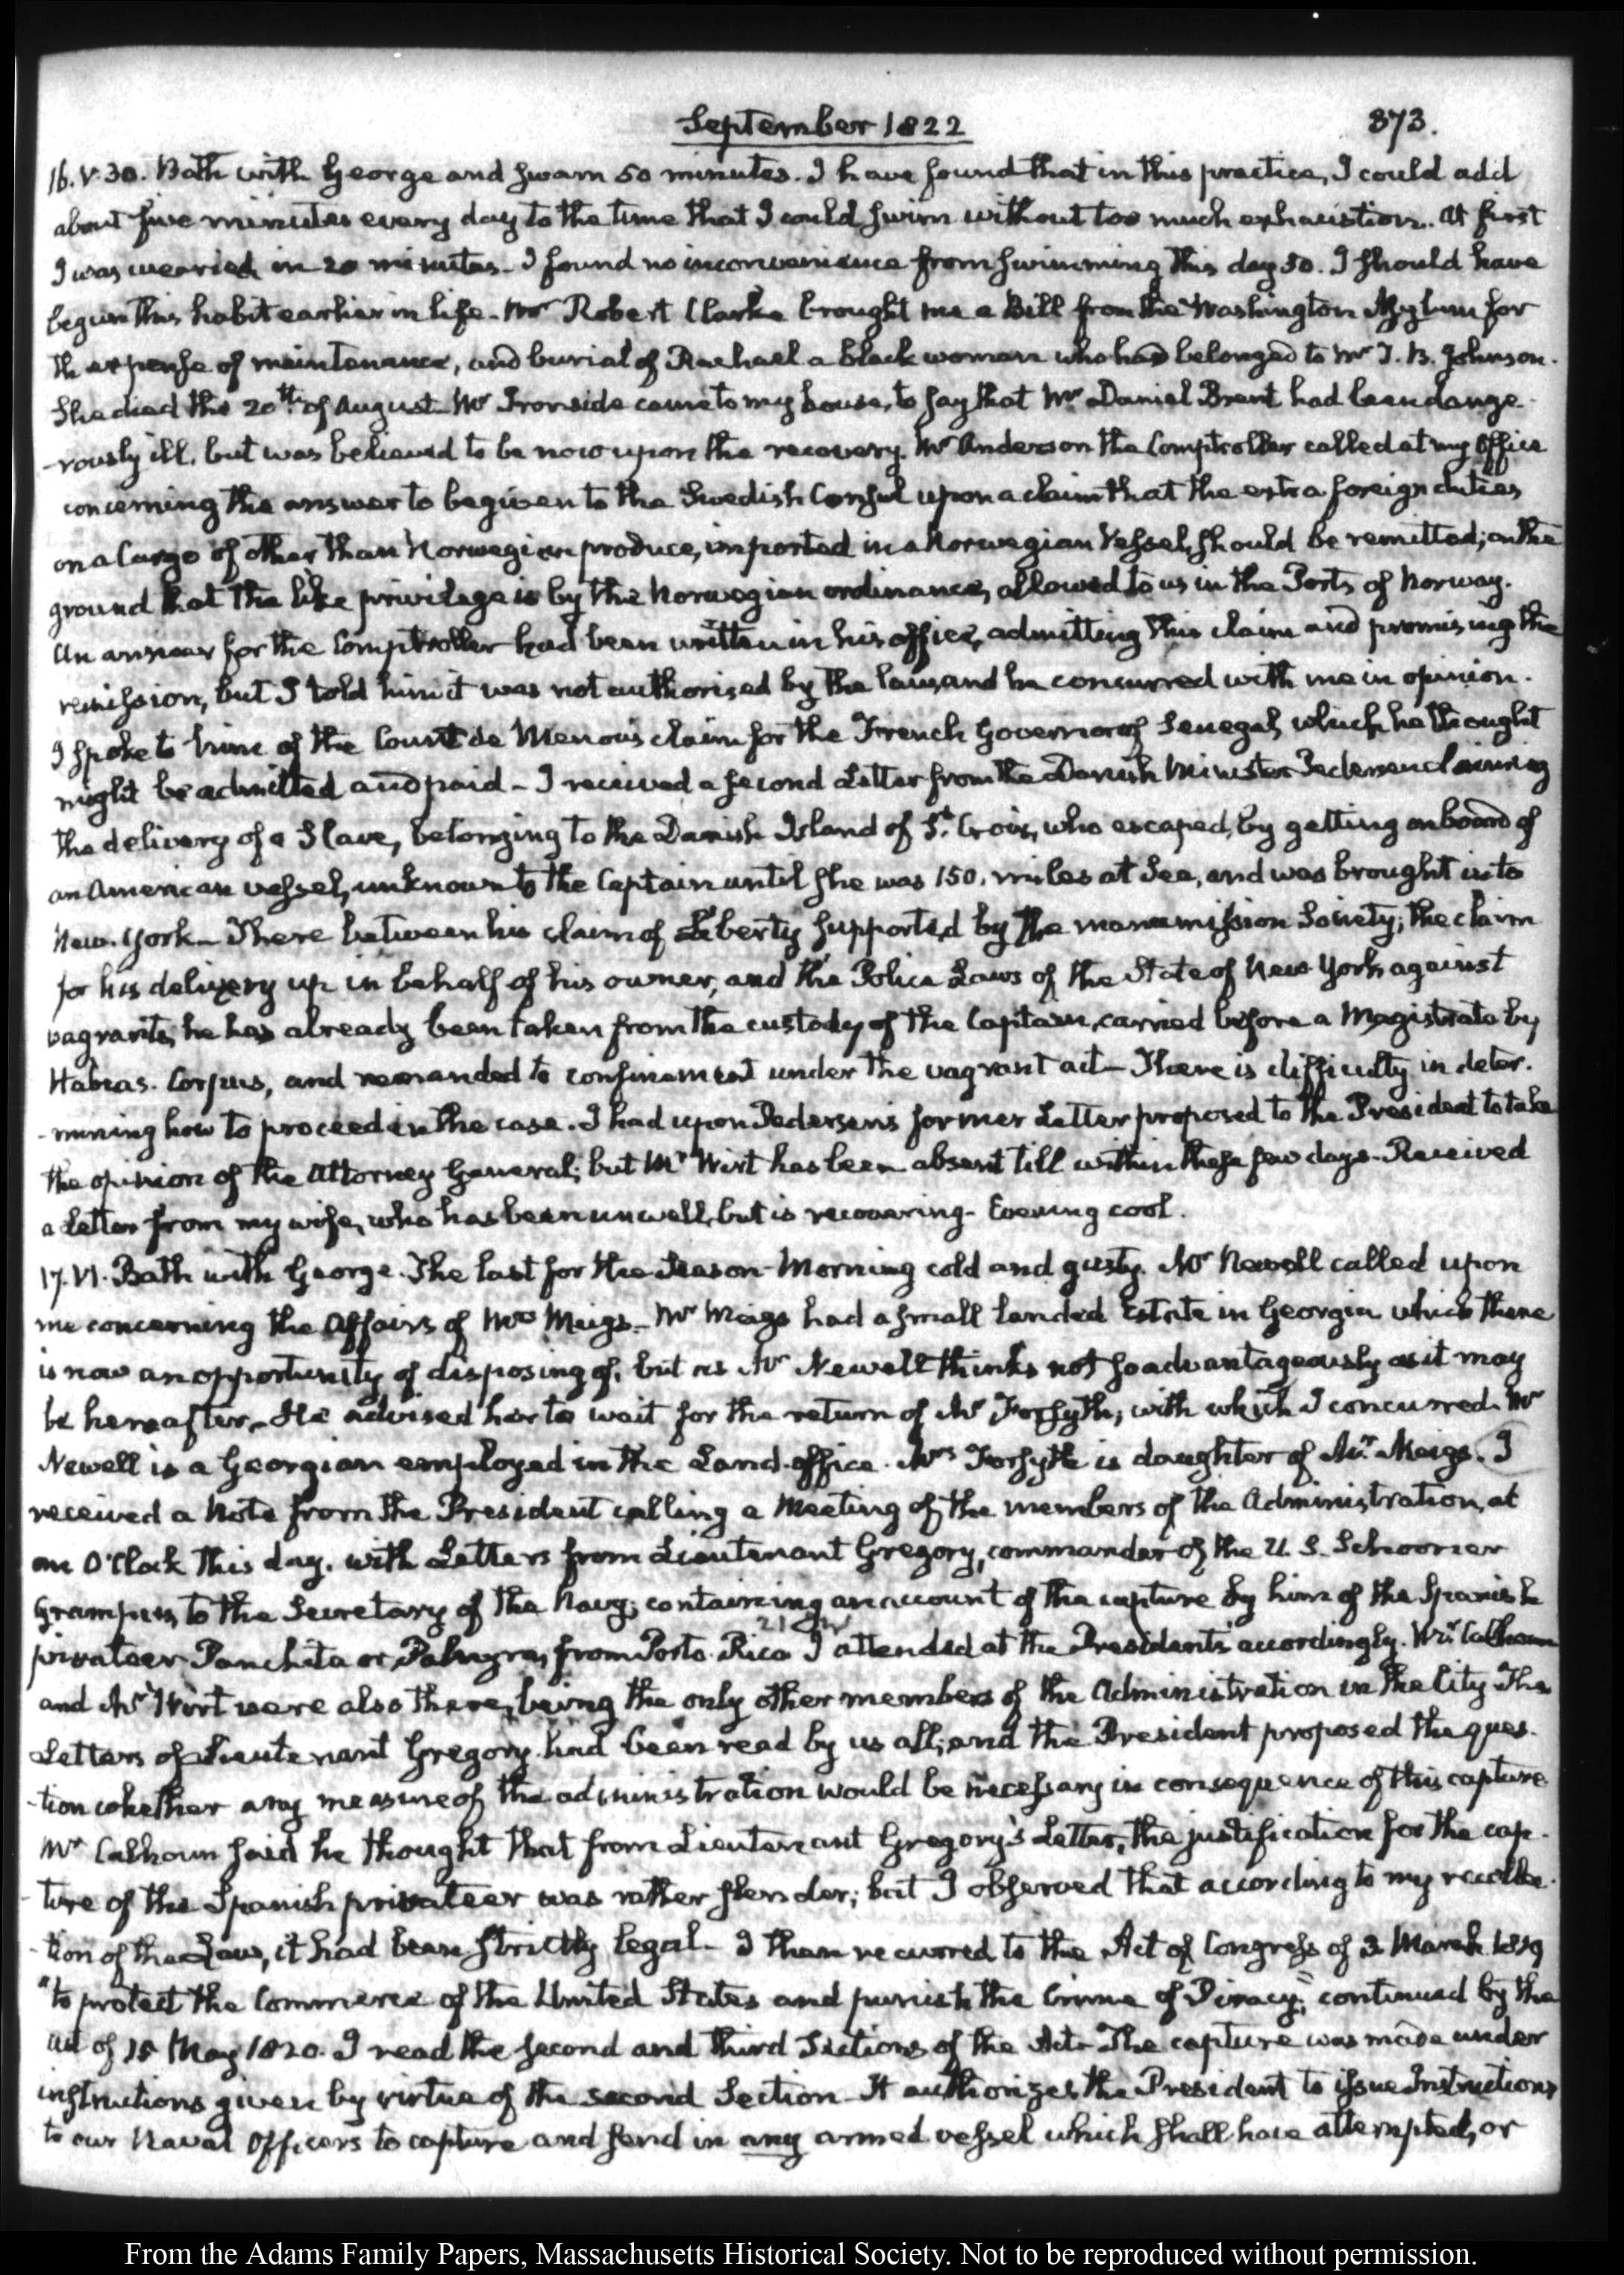 September 1822
373.
16. V. 30. Bath with George and swam 50 minutes. I have found that in this practice, I could add
about five minutes every day to the time that I could swim without too much exhaustion. At first
I was wearied in 20 minutes. I found no inconvenience from swimming this day 50. I should have
begun this habit earlier in life. Mr Robert Clarke brought me a Bill from the Washington Asylum for
the expense of maintenance, and burial of Rachael a black woman who had belonged to Mr T. B. Johnson.
She died the 20th of August. Mr Ironside came to my house, to say that Mr Daniel Brent had been dange-
-rously ill, but was believed to be now upon the recovery. Mr Anderson the Comptroller called at my Office
concerning the answer to be given to the Swedish Consul upon a claim that the extra foreign duties
on a Cargo of other than Norwegian produce, imported in a Norwegian Vessel, should be remitted; on the
ground that the like privilege is by the Norwegian ordinance, allowed to us in the Ports of Norway.
An answer for the Comptroller had been written in his office, admitting this claim and promising the
remission, but I told him it was not authorised by the law, and he concurred with me in opinion.
I spoke to him of the Count de Menou's claim for the French Governor of Senegal, which he thought
might be admitted and paid - I received a second Letter from the Danish Minister Pedersen claiming
the delivery of a Slave, belonging to the Danish Island of St. Croix, who escaped, by getting on board of
an American vessel, unknown to the Captain until she was 150. miles at Sea, and was brought into
New-York - There between his claim of Liberty supported by the manumission Society; the claim
for his delivery up in behalf of his owner, and the Police Laws of the State of New York against
vagrants, he has already been taken from the custody of the Captain, carried before a Magistrate by
Habeas. Corpus, and remanded to confinement under the vagrant act - There is difficulty in deter-
-mining how to proceed in the case. I had upon Pedersen's former Letter proposed to the President to take
the opinion of the Attorney General; but Mr Wirt has been absent till within these few days - Received
a Letter from my wife, who has been unwell, but is recovering - Evening cool.
17. VI. Bath with George. The last for the Season - Morning cold and gusty. Mr Newell called upon
me concerning the Affairs of Mrs Meigs - Mr Meigs had a small landed Estate in Georgia which there
is now an opportunity of disposing of, but as Mr Newell thinks not so advantageously as it may
be hereafter - He advised her to wait for the return of Mr Forsyth, with which I concurred. Mr
Newell is a Georgian employed in the Land-office. Mrs Forsyth is daughter of Mr. Meigs. I
received a Note from the President calling a Meeting of the members of the Administration, at
one O'Clock this day. with Letters from Lieutenant Gregory, commander of the U. S. Schooner
Grampus, to the Secretary of the Navy; containing an account of the capture by him of the Spanish
privateer Panchita or Palmyra, from Porto-Rico I attended at the Presidents accordingly. Mr. Calhoun
and Mr Wirt were also there, being the only other members of the Administration in the City The
Letters of Lieutenant Gregory had been read by us all; and the President proposed the ques-
-tion whether any measure of the administration would be necessary in consequence of this capture.
Mr Calhoun said he thought that from Lieutenant Gregory's Letter, the justification for the cap-
-ture of the Spanish privateer was rather slender; but I observed that according to my recollec-
-tion of the Law, it had been strictly legal - I then recurred to the Act of Congress of 3 March 1819
"to protect the Commerce of the United States and punish the Crime of Piracy," continued by the
act of 15 May 1820. I read the second and third Sections of the Act - The capture was made under
instructions given by virtue of the second Section - It authorizes the President to issue Instructions
to our Naval Officers to capture and send in any armed vessel which shall have attempted, or
From the Adams Family Papers, Massachusetts Historical Society. Not to be reproduced without permission.